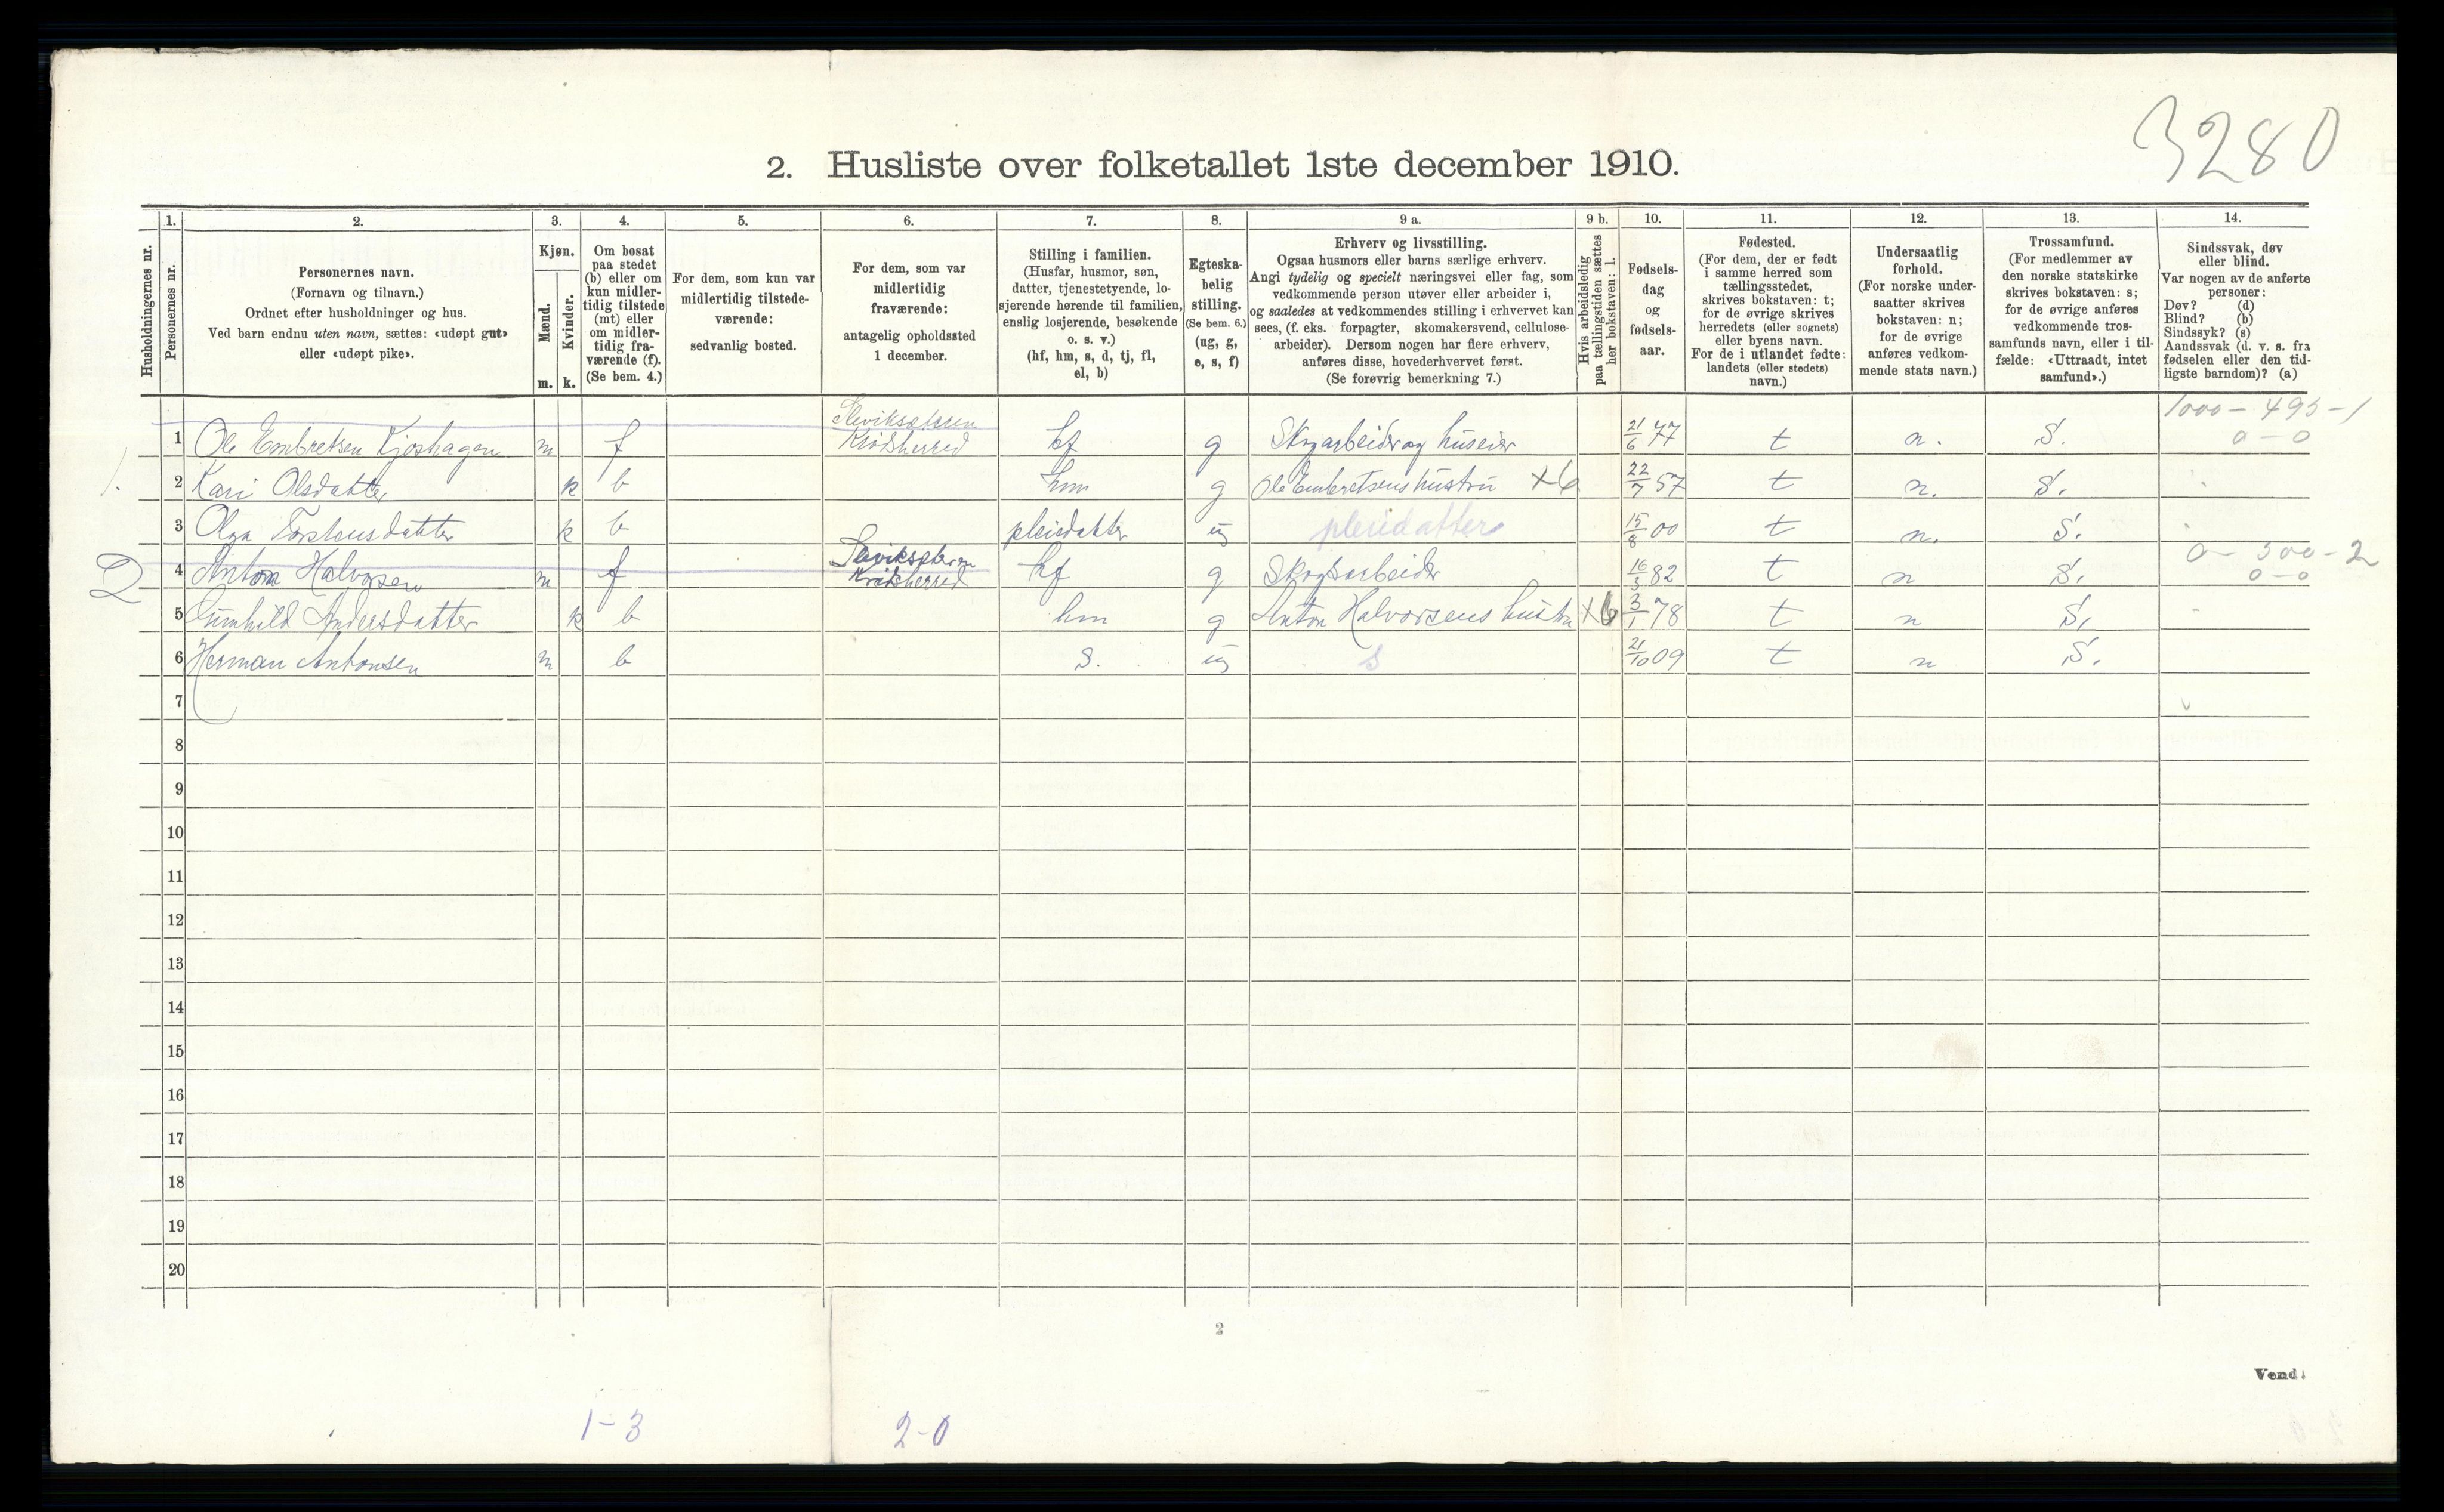 3280
2. Husliste over folketallet 1ste december 1910.
Husholdningernes nr.
1.
Personernes nr.
2.
Personernes navn.
(Fornavn og tilnavn.)
Ordnet efter husholdninger og hus.
Ved barn endnu uten navn, sættes: «udøpt gut»
eller «udøpt pike».
3.
Kjøn.
Mænd.
Kvinder.
m. k.
4.
Om bosat
paa stedet
(b) eller om
kun midler-
tidig tilstede
(mt) eller
om midler-
tidig fra-
værende (f).
(Se bem. 4.)
5.
For dem, som kun var
midlertidig tilstede-
værende:
sedvanlig bosted.
6.
For dem, som var
midlertidig
fraværende:
antagelig opholdssted
1 december.
7.
Stilling i familien.
(Husfar, husmor, søn,
datter, tjenestetyende, lo-
sjerende hørende til familien,
enslig losjerende, besøkende
o. s. v.)
(hf, hm, s, d, tj, fl,
el, b)
8.
Egteska-
belig
stilling.
(Se bem. 6.)
(ug, g,
e, s, f)
9 a.
Erhverv og livsstilling.
Ogsaa husmors eller barns særlige erhverv.
Angi tydelig og specielt næringsvei eller fag, som
vedkommende person utøver eller arbeider i,
og saaledes at vedkommendes stilling i erhvervet kan
sees, (f. eks. forpagter, skomakersvend, cellulose-
arbeider). Dersom nogen har flere erhverv,
anføres disse, hovederhvervet først.
(Se forøvrig bemerkning 7.)
9 b.
Hvis arbeidsledig
paa tællingstiden sættes
her bokstaven: l.
10.
Fødsels-
dag
og
fødsels-
aar.
11.
Fødested.
(For dem, der er født
i samme herred som
tællingsstedet,
skrives bokstaven: t;
for de øvrige skrives
herredets (eller sognets)
eller byens navn.
For de i utlandet fødte:
landets (eller stedets)
navn.)
12.
Undersaatlig
forhold.
(For norske under-
saatter skrives
bokstaven: n;
for de øvrige
anføres vedkom-
mende stats navn.)
13.
Trossamfund.
(For medlemmer av
den norske statskirke
skrives bokstaven: s;
for de øvrige anføres
vedkommende tros-
samfunds navn, eller i til-
fælde: «Uttraadt, intet
samfund».)
14.
Sindssvak, døv
eller blind.
Var nogen av de anførte
personer:
Døv? (d)
Blind? (b)
Sindssyk? (s)
Aandssvak (d. v. s. fra
fødselen eller den tid-
ligste barndom)? (a)
1000 - 495 - 1
1. 1 Ole Embretsen Kjøshagen m f Krødsherred hf g Skogarbeider og huseier 21/6 77 t n. S. 0 - 0
2 Kari Olsdatter k b hm g Ole Embretsens hustru X6 22/7 57 t n. S.
3 Olga Torstensdatter k b pleiedatter ug pleiedatter 15/8 00 t n. S.
0 - 500 - 2
2 4 Anton Halvorsen m f Krødsherred hf g Skogsarbeider 16/3 82 t n S. 0 - 0
5 Gunhild Andersdatter k b hm g Anton Halvorsens hustru X6 3/1 78 t n S.
6 Herman Antonsen m b s. ug s 21/10 09 t n S.
7
8
9
10
11
12
13
14
15
16
17
18
19
20
2
Vend!
1-3 2-0